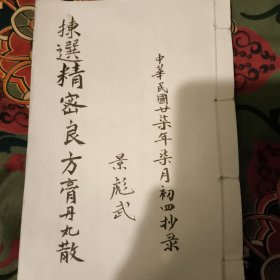 中華民國廿柒年柒月初四抄录
景彪武
揀選精密良方膏丹丸散